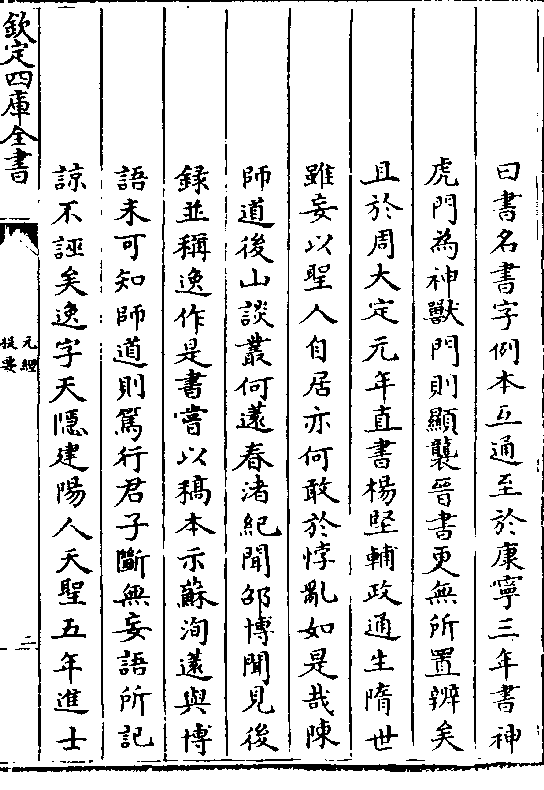 曰書名書字例本互通至於康寧三年書神
虎門為神獸門則顯襲晉書更無所置辨矣
且於周大定元年直書楊堅輔政通生隋世
雖妄以聖人自居亦何敢於悖亂如是哉陳
師道後山談叢何薳春渚紀聞邵博聞見後
録並稱逸作是書嘗以稿本示蘇洵薳與博
語未可知師道則篤行君子斷無妄語所記
諒不誣矣逸字天隱建陽人天聖五年進士
欽定四庫全書
元經
提要
二